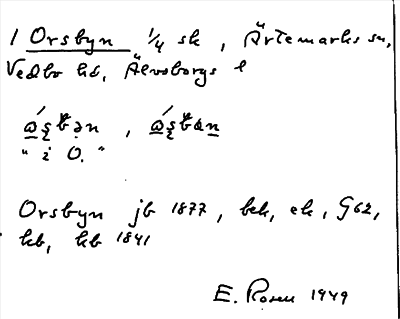 1 Orsbyn 1/4 sk, Ärtemarks sn,
Vedbo hd, Älvsborgs l
" i O. "
Orsbyn jb 1877, bek, ek, G62,
kb, hb 1841
E. Rosen 1949